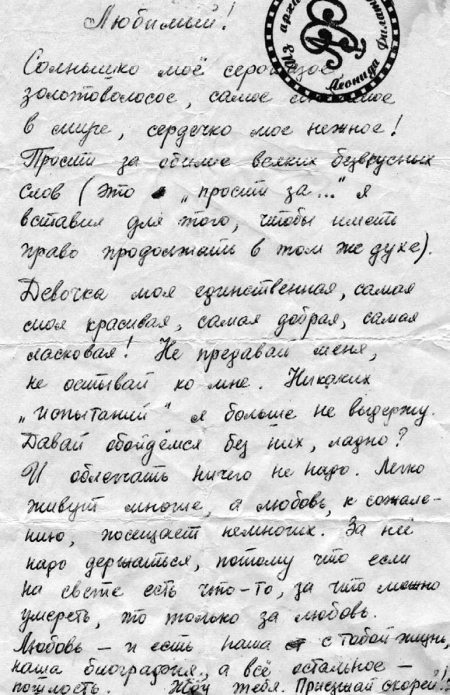 Любимый!
из архива Леонида Филатова
Солнышко моё сероглазое
золотоволосое, самое
в мире, сердечко мое нежное!
Прости за обилие всяких безвкусных
слов (это „прости за..." я
вставил для того, чтобы иметь
право продолжать в том же духе).
Девочка моя единственная, самая
моя красивая, самая добрая, самая
ласковая! Не предавай меня,
не остывай ко мне. Никаких
„испытаний" я больше не выдержу.
Давай обойдёмся без них, ладно?
И облегчать ничего не надо. Легко
живут многие, а любовь, к сожале-
нию, посещает немногих. За неё
надо держаться, потому что если
на свете есть что-то, за что можно
умереть, это только за любовь.
Любовь – и есть наша с тобой жизнь,
наша биография, а всё остальное –
пошлость. Жду тебя. Приезжай скорей!